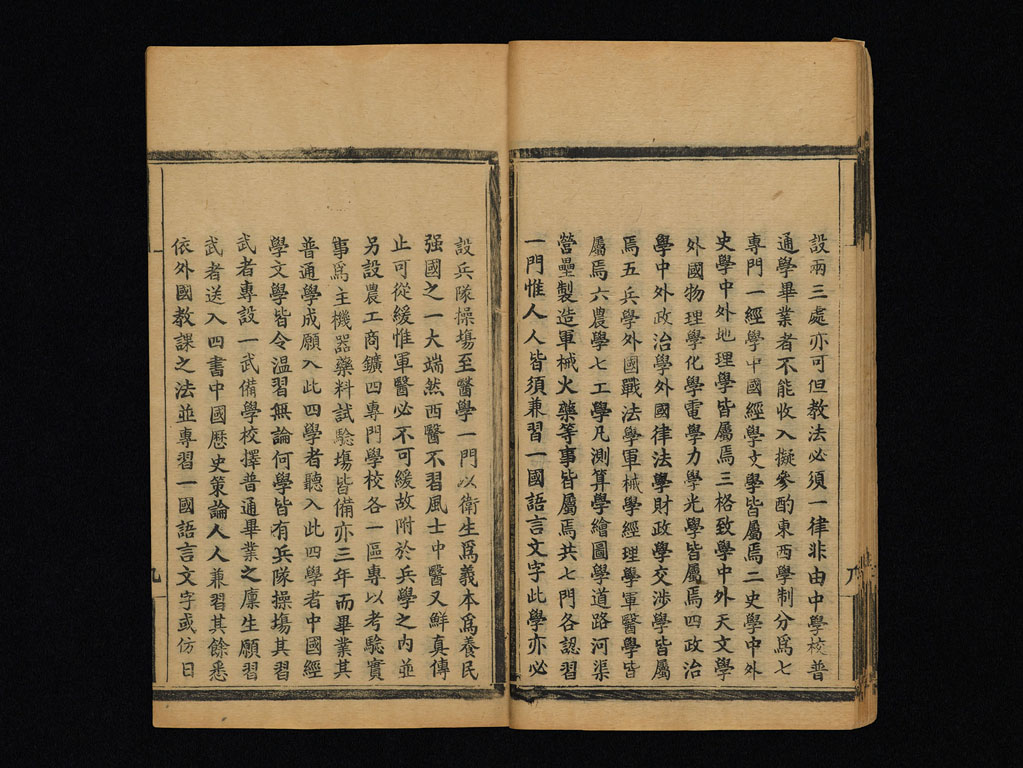 設兩三處亦可但教法必須一律非由中學校普
通學畢業者不能收入擬參酌東西學制分爲七
專門一經學中國經學文學皆屬焉二史學中外
史學中外地理學皆屬焉三格致學中外天文學
外國物理學化學電學力學光學皆屬焉四政治
學中外政治學外國律法學財政學交涉學皆屬
焉五兵學外國戰法學軍械學經理學軍醫學皆
屬焉六農學七工學凡測算學繪圖學道路河渠
營壘製造軍械火藥等事皆屬焉共七門各認習
一門惟人人皆須兼習一國語言文字此學亦必
設兵隊操塲至醫學一門以衛生爲義本爲養民
强國之一大端然西醫不習風士中醫又鮮真傳
止可從緩惟軍醫必不可緩故附於兵學之內並
另設農工商鑛四專門學校各一區專以考騐實
事爲主機器藥料試騐塲皆備亦三年而畢業其
普通學成願入此四學者聽入此四學者中國經
學文學皆令温習無論何學皆有兵隊操塲其習
武者專設一武備學校擇普通畢業之廩生願習
武者送入四書中國歷史策論人人兼習其餘悉
依外國教課之法並專習一國語言文字或仿日
九